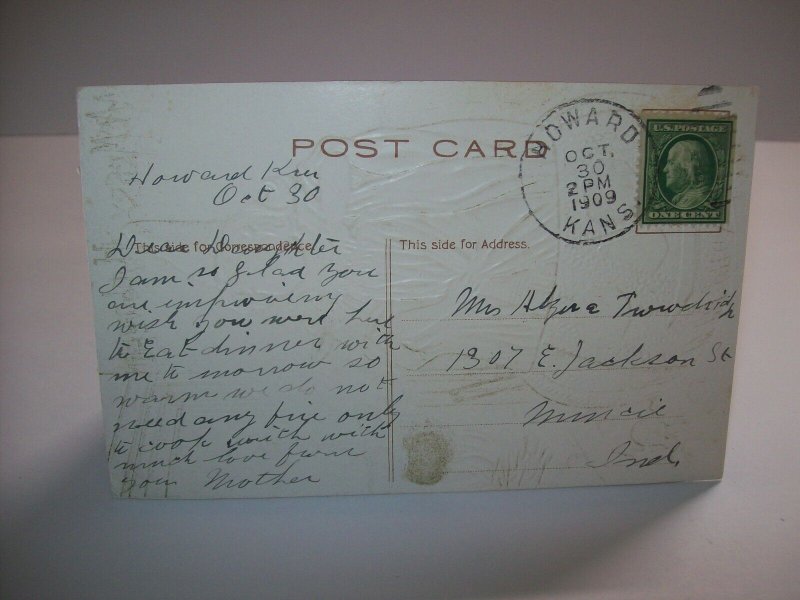 POST CARD
HOWARD
OCT.
30
2 PM
1909
KANS.
U.S. POSTAGE
ONE CENT
Howard
Oct 30
This side for Correspondence.
This side for Address.
Dear Daughter
I am so glad you
are improving
wish you were here
to Eat dinner with
me to morrow so
warm we do not
need any fire only
to cook with with
much love from
your Mother
Mrs
1307 E. Jackson St
Muncie
Ind.